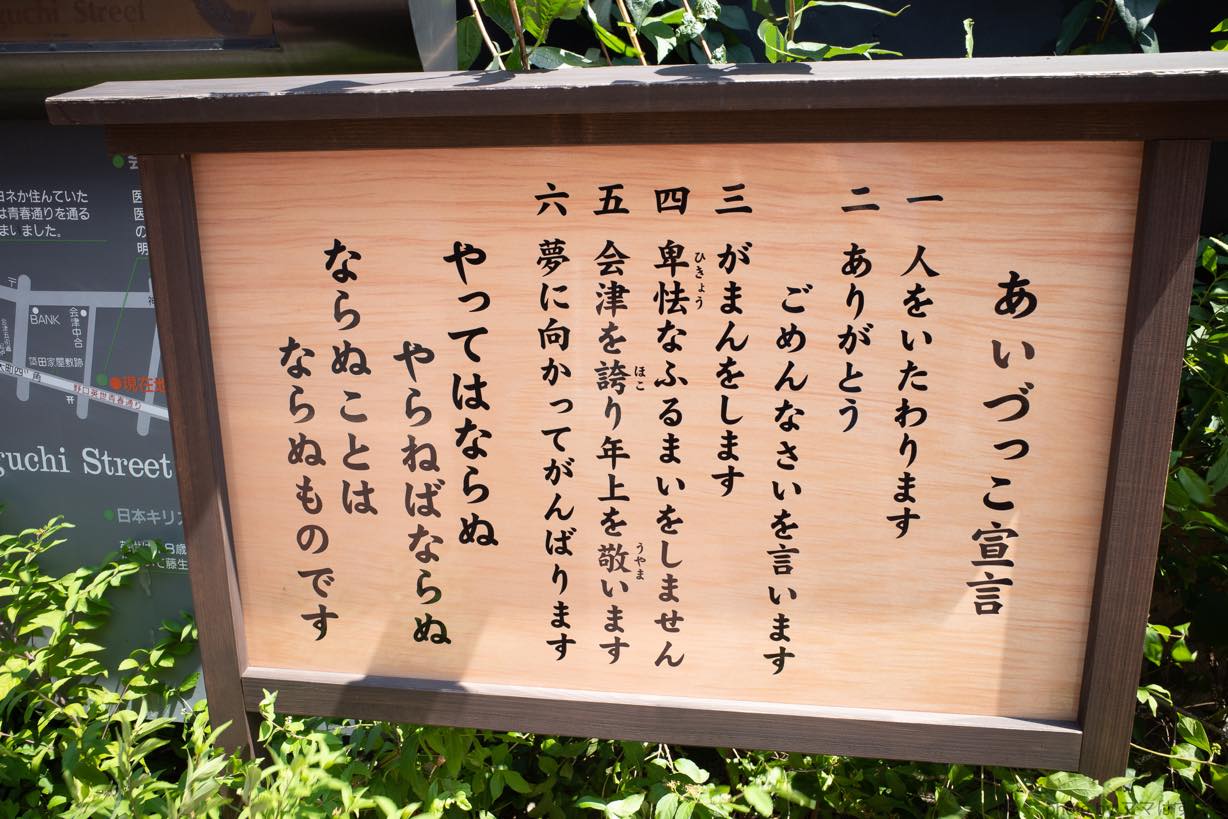 あいづっこ宣言
一 人をいたわります
二 ありがとう
ごめんなさいを言います
三 がまんをします
四 卑怯なふるまいをしません
ひきょう
五 会津を誇り年上を敬います
ほこ
うやま
六 夢に向かってがんばります
やってはならぬ
やらねばならぬ
ならぬことは
ならぬものです
guchi Street
ヨネが住んでいた
は青春通りを通る
ました。
BANK
会津中合
簗田家屋敷跡
現在地
野口英世青春通り
guchi Street
日本キリ